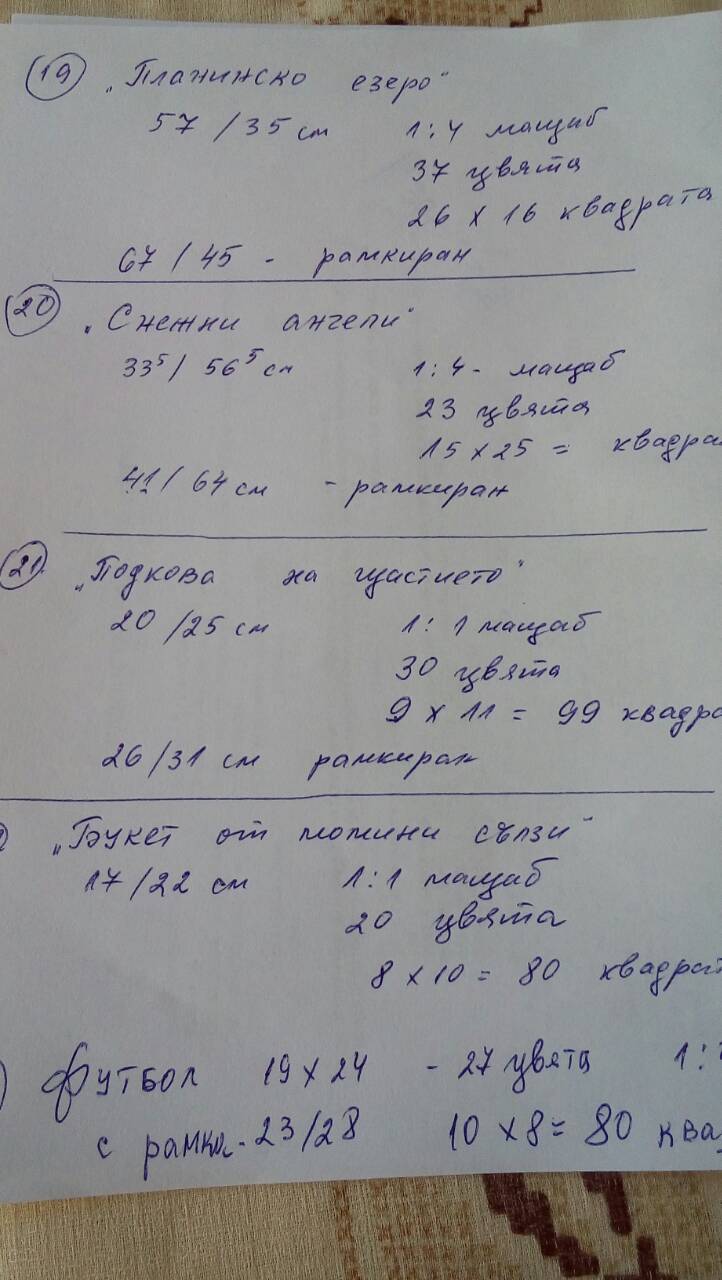 19 „Планинско езеро“
57 / 35 см 1:4 мащаб
37 цвята
26 x 16 квадрата
67 / 45 - рамкиран
20 „Снежни ангели“
33⁵ / 56⁵ см 1:4 - мащаб
23 цвята
15 x 25 = квадра
41 / 64 см - рамкиран
21. „Подкова на щастието“
20 / 25 см 1:1 мащаб
30 цвята
9 x 11 = 99 квадра
26 / 31 см рамкиран
„Букет от момини сълзи“
17 / 22 см 1:1 мащаб
20 цвята
8 x 10 = 80 квадрат
Футбол 19 x 24 - 27 цвята 1:
с рамка - 23/28 10 x 8 = 80 ква